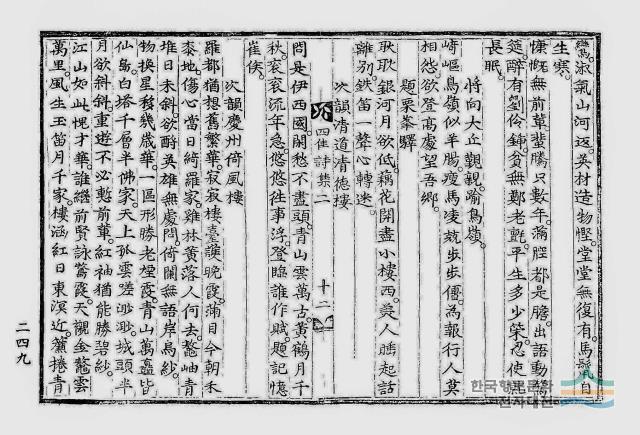 鸞淑氣山河返英材造物慳堂堂無復有馬鬣自
生寒
慷慨無前輩蜚騰只數年滿腔都是膽出語動驚
筵醉有劉伶鍤貧無鄭老氈平生多少榮忍使
長眠
將向大丘觀親踰鳥嶺
崎嶇鳥嶺似羊腸瘦馬凌兢步步僵爲報行人莫
相怨欲登高處望吾鄉
題栗峯驛
耿耿銀河月欲低藕花開盡小樓西美人睡起話
離別鐵笛一聲心轉迷
次韻清道清德樓
問是伊西國關愁不盡頭靑山雲萬古黃鶴月千
秋衮衮流年急悠悠往事浮登臨誰作賦題記憶
崔侯
次韻慶州倚風樓
羅都猶想舊繁華寂寂樓臺護晚霞蒲目今朝禾
黍地傷心當日綺羅家雞林黃落人何去鰲岫靑
堆日未斜欲酹英雄無處問倚闌無語岸烏紗
物換星移幾歲華一區形勝老煙霞靑山萬矗皆
仙島白塔千層半佛家天上孤雲蹉渺渺城頭半
月欲斜斜重遊不必慙前輩紅袖猶能勝碧紗
江山如此愧才華誰繼前賢詠鶩霞天襯金鰲雲
萬里風生玉笛月千家樓涵紅日東溟近簾捲靑
四佳詩集二
十二
二四九
한국향토문화
전자대전